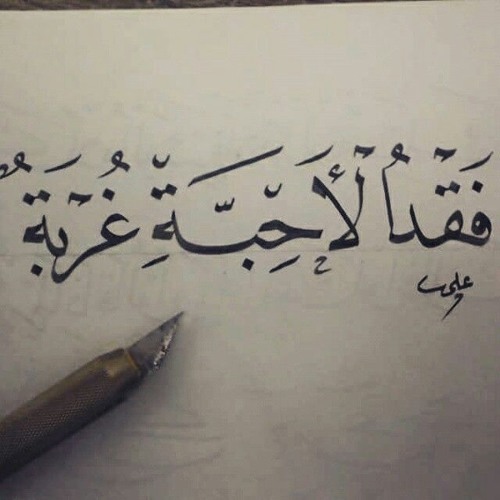 فَقْدُ الْأَحِبَّةِ غُرْبَةٌ
علي